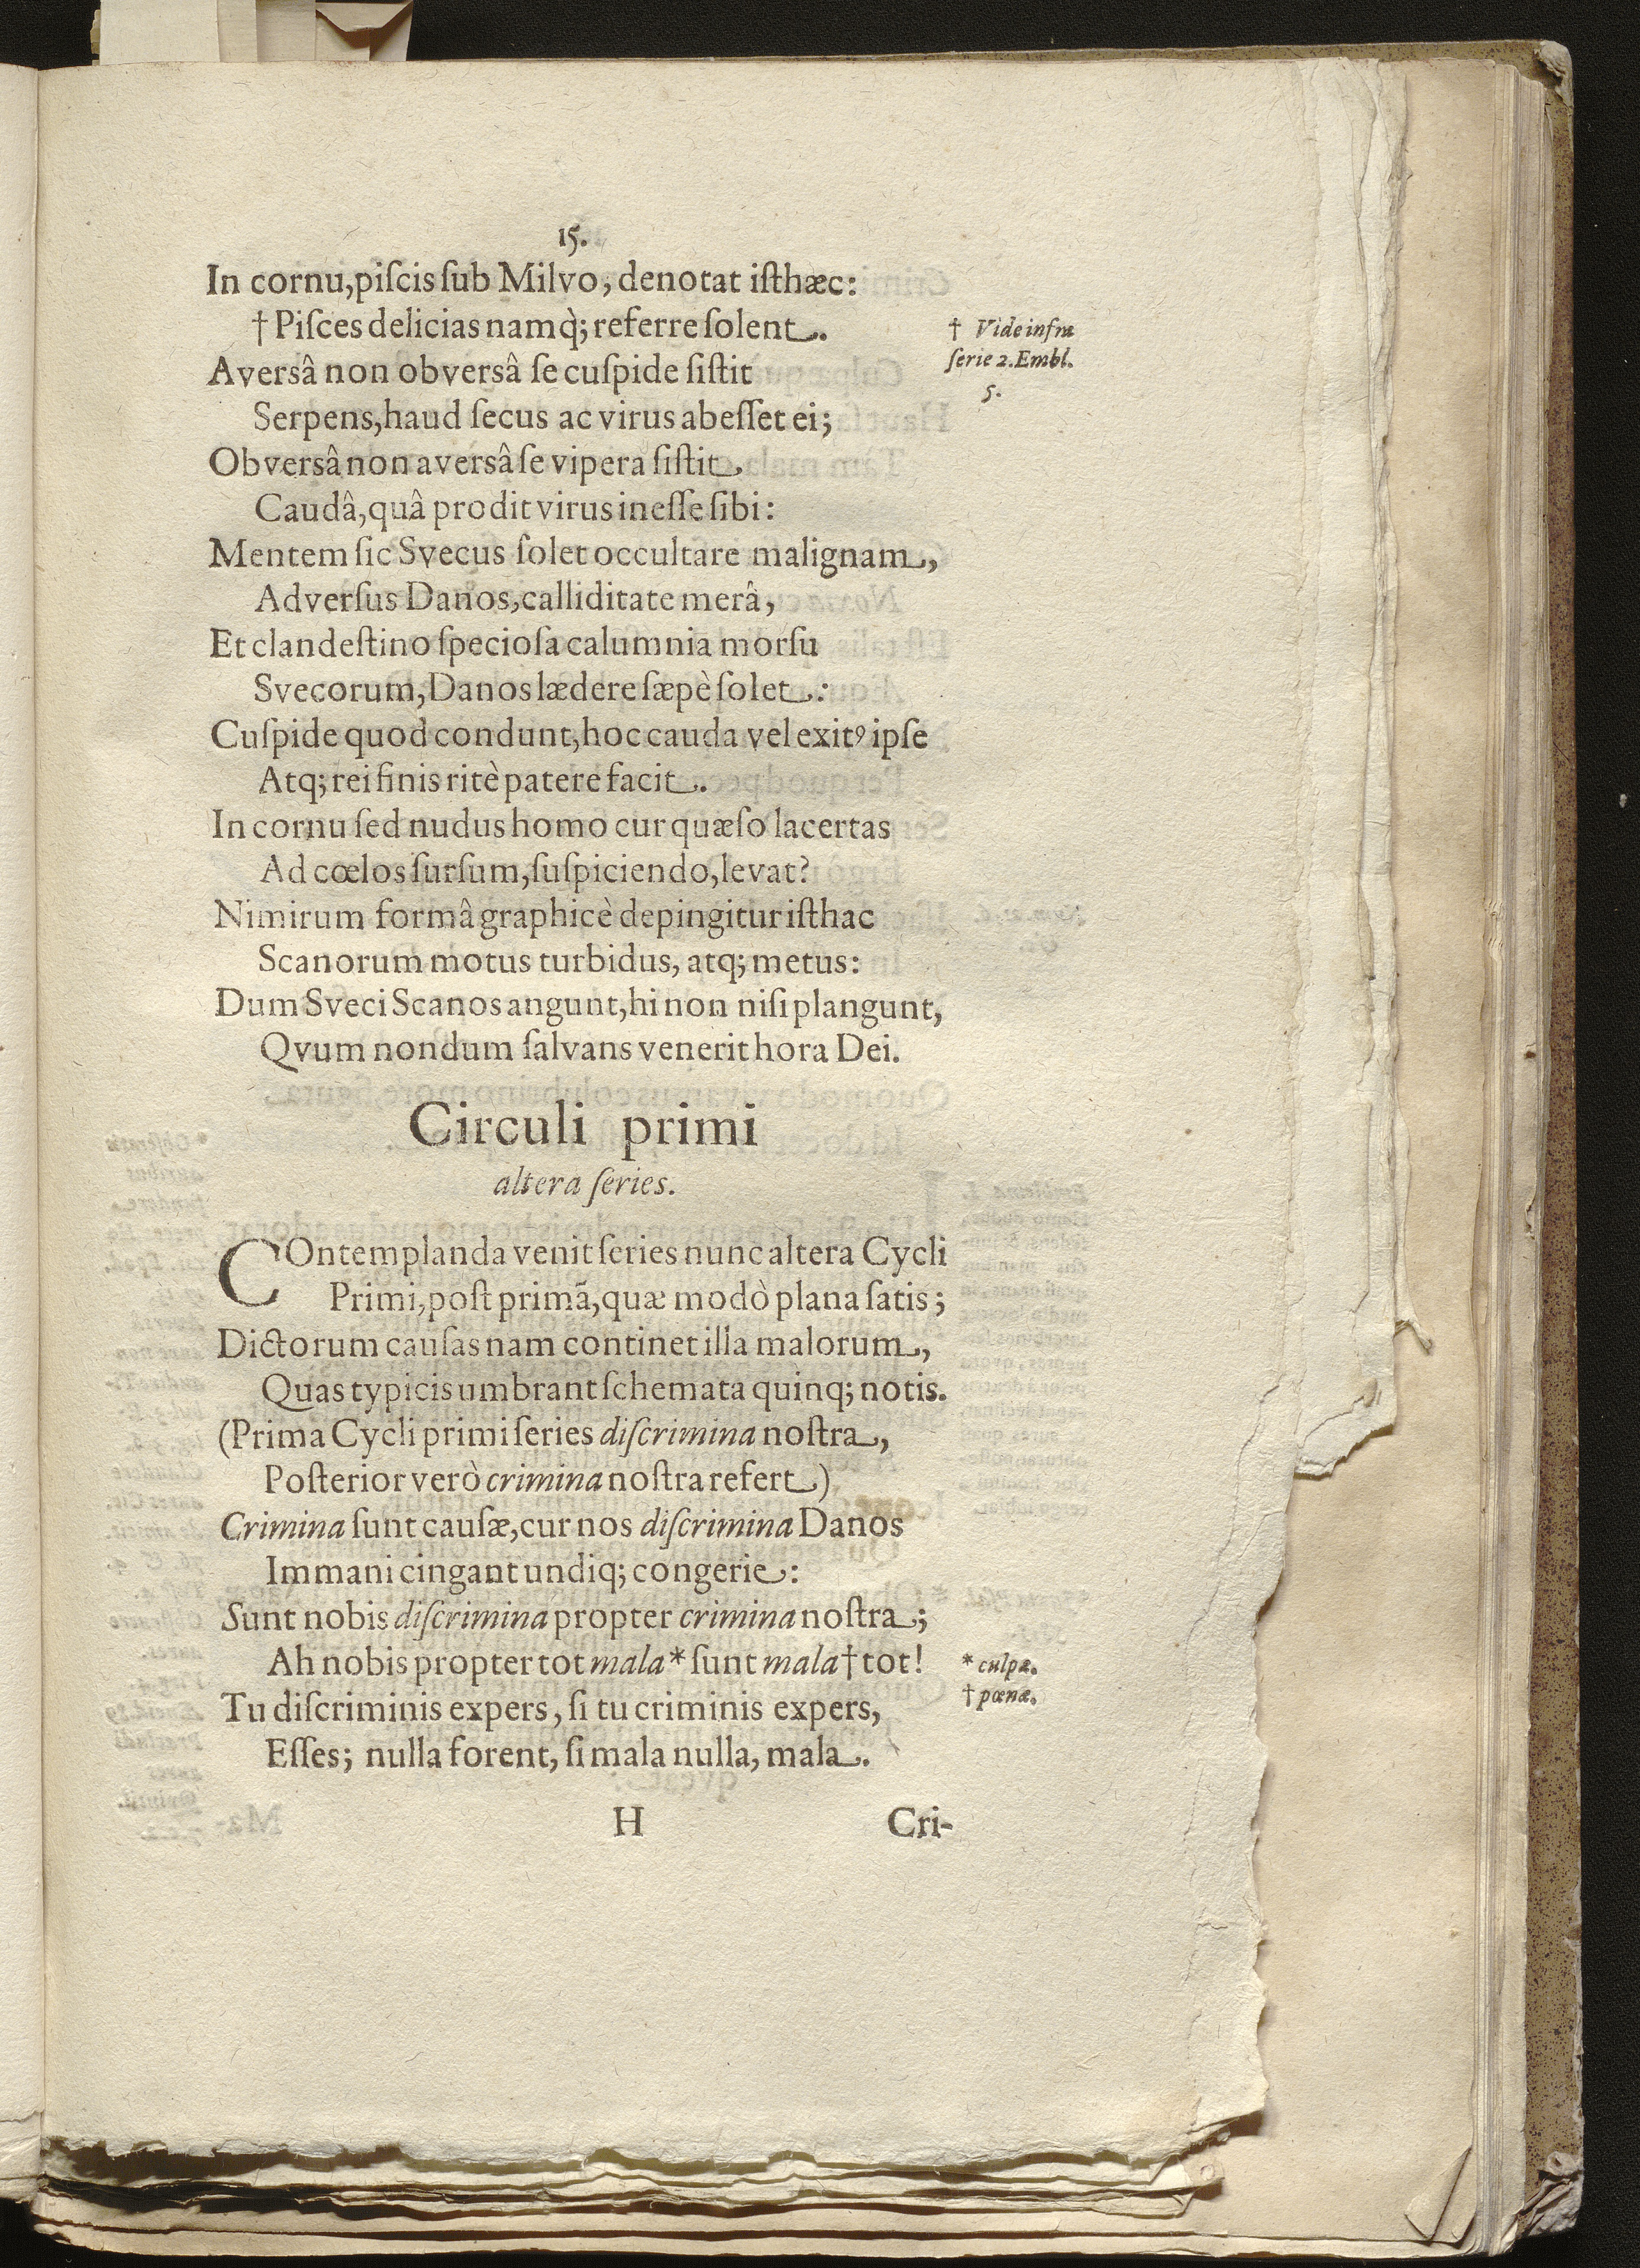 15.
In cornu, piſcis ſub Milvo, denotat iſthæc:
† Piſces delicias namq̀; referre ſolent.
† Vide infra
ſerie 2. Embl.
5.
Aversâ non obversâ ſe cuſpide ſiſtit
Serpens, haud ſecus ac virus abeſſet ei;
Obversâ non aversâ ſe vipera ſiſtit
Caudâ, quâ prodit virus ineſſe ſibi:
Mentem ſic Svecus ſolet occultare malignam,
Adverſus Danos, calliditate merâ,
Et clandeſtino ſpecioſa calumnia morſu
Svecorum, Danos lædere ſæpè ſolet:
Cuſpide quod condunt, hoc cauda vel exitꝰ ipſe
Atq; rei finis ritè patere facit.
In cornu ſed nudus homo cur quæſo lacertas
Ad cœlos ſurſum, ſuſpiciendo, levat?
Nimirum formâ graphicè depingitur iſthac
Scanorum motus turbidus, atq; metus:
Dum Sveci Scanos angunt, hi non niſi plangunt,
Qvum nondum ſalvans venerit hora Dei.
Circuli primi
altera ſeries.
COntemplanda venit ſeries nunc altera Cycli
Primi, poſt primã, quæ modò plana ſatis;
Dictorum cauſas nam continet illa malorum,
Quas typicis umbrant ſchemata quinq; notis.
(Prima Cycli primi ſeries diſcrimina noſtra,
Poſterior verò crimina noſtra refert)
Crimina ſunt cauſæ, cur nos diſcrimina Danos
Immani cingant undiq; congerie:
Sunt nobis diſcrimina propter crimina noſtra;
Ah nobis propter tot mala * ſunt mala † tot!
* culpæ.
† pœnæ.
Tu diſcriminis expers, ſi tu criminis expers,
Eſſes; nulla forent, ſi mala nulla, mala.
H
Cri-